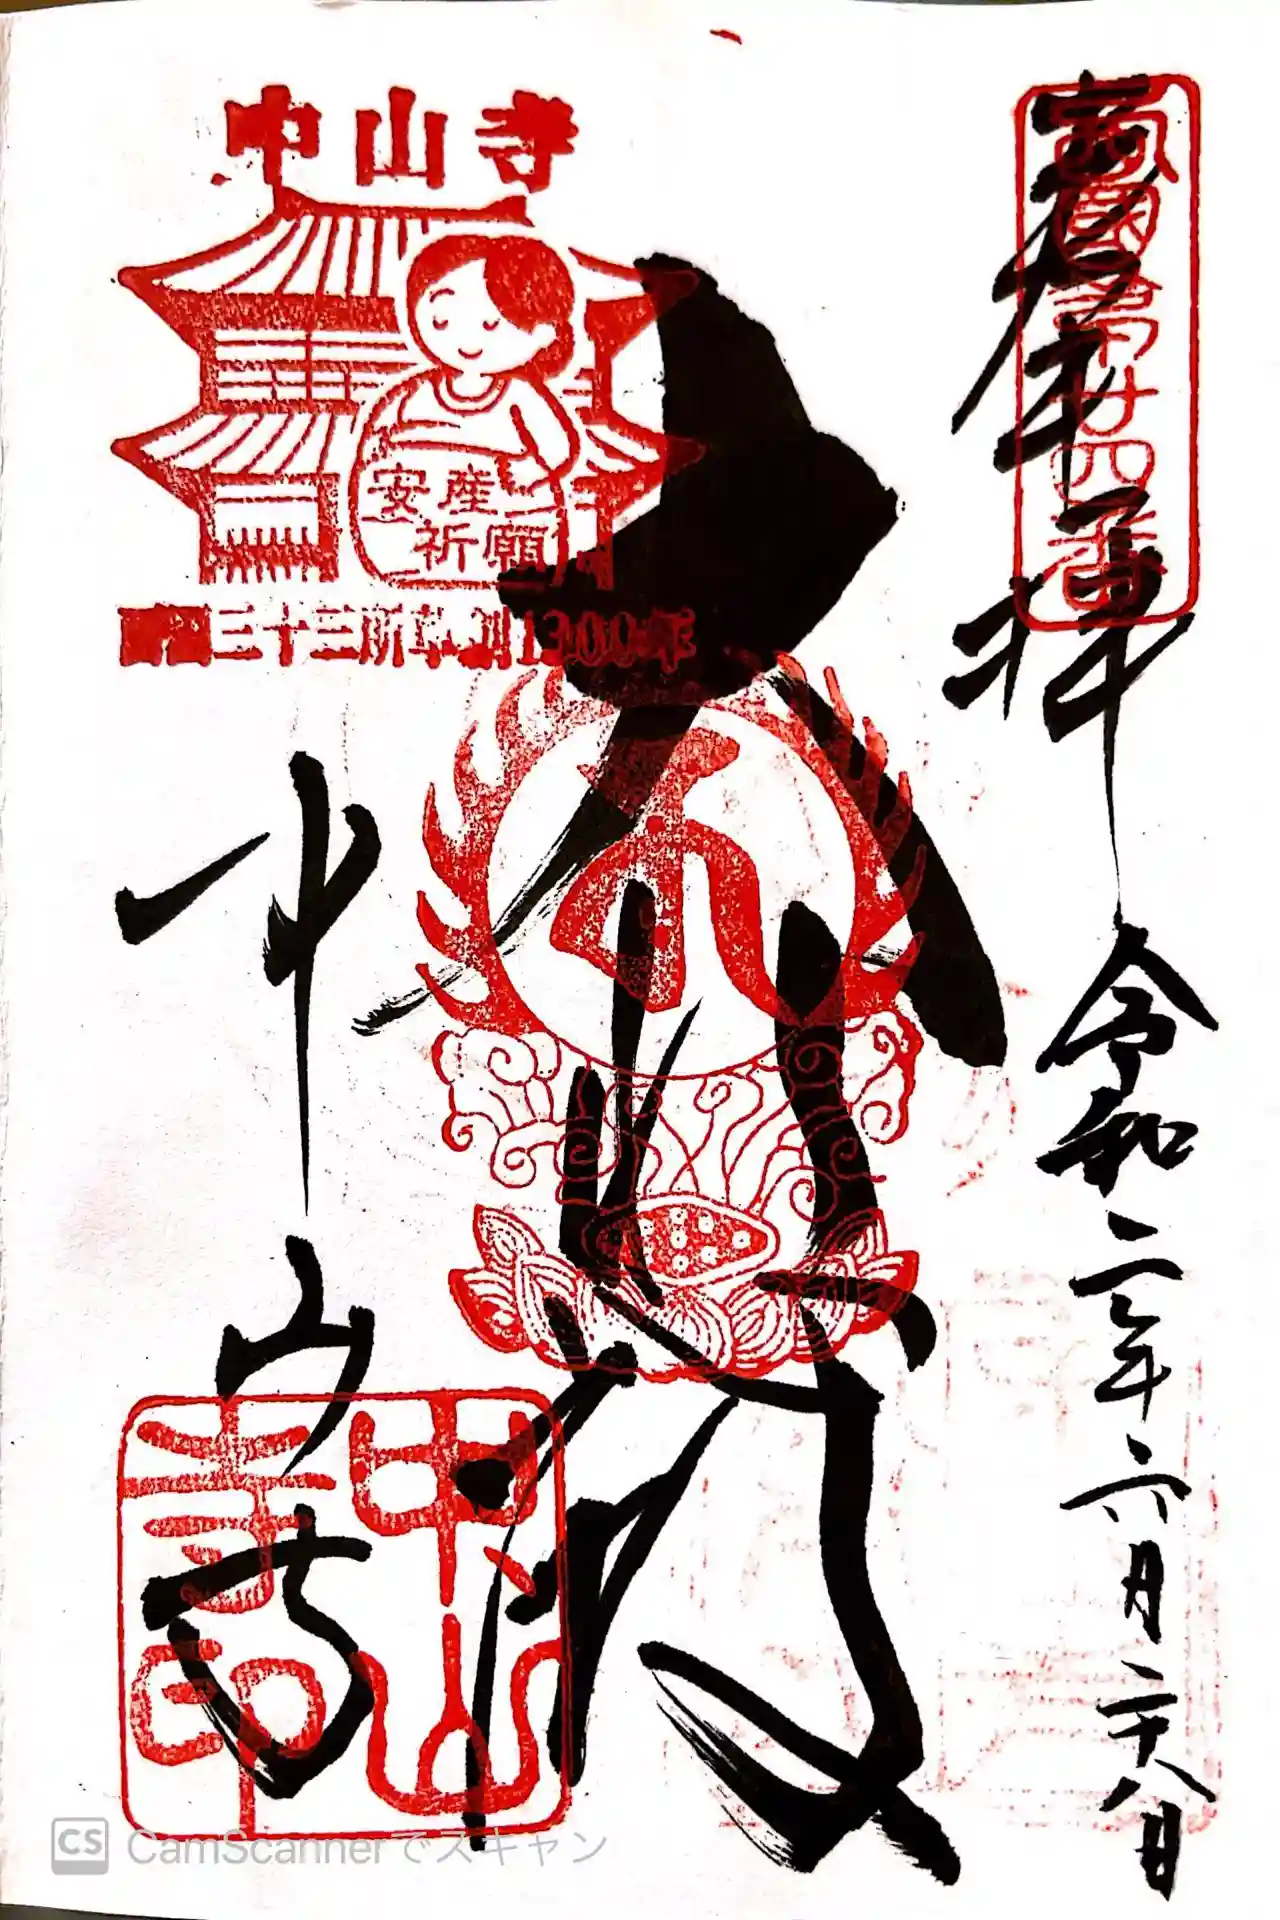 西國第廿四番
拝
令和二年六月二十八日
大悲殿
中山寺
安産
祈願
西国三十三所草創1300年
中山寺
中山寺印
CS CamScannerでスキャン